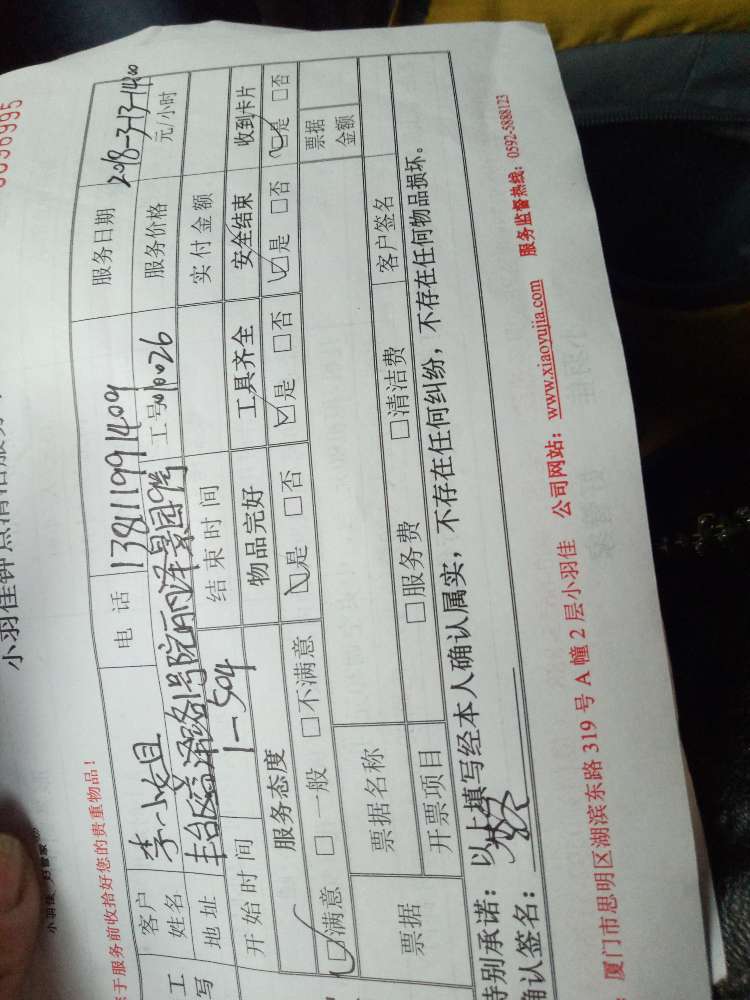 0096995
小羽佳钟点清洁服务
小羽佳 好管家
于服务前收拾好您的贵重物品!
客户姓名 李小姐 电话 13811991409 服务日期 2018-3-13-14:00
地址 丰台区 路1号院 景园9号 工号 01026 服务价格 元/小时
1-504
开始时间 结束时间 实付金额
服务态度 物品完好 工具齐全 安全结束 收到卡片
☑满意 □一般 □不满意 ☑是 □否 ☑是 □否 ☑是 □否 ☑是 □否
票据 票据名称 票据金额
开票项目 □服务费 □清洁费 客户签名
特别承诺:以上填写经本人确认属实,不存在任何纠纷,不存在任何物品损坏。
确认签名:
厦门市思明区湖滨东路 319 号 A 幢 2 层小羽佳 公司网站:www.xiaoyujia.com 服务监督热线:0592-5888123